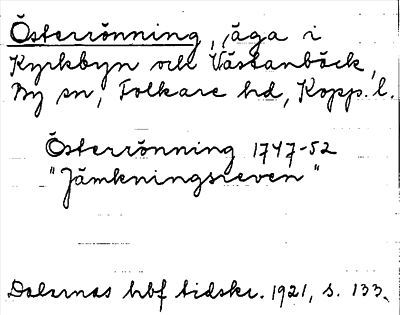 Österrönning, äga i
Kyrkbyn och Västanbäck,
By sn, Folkare hd, Kopp. l.
Österrönning 1747-52
"Jämkningsreven"
Dalarnas hbf tidskr. 1921, s. 133.